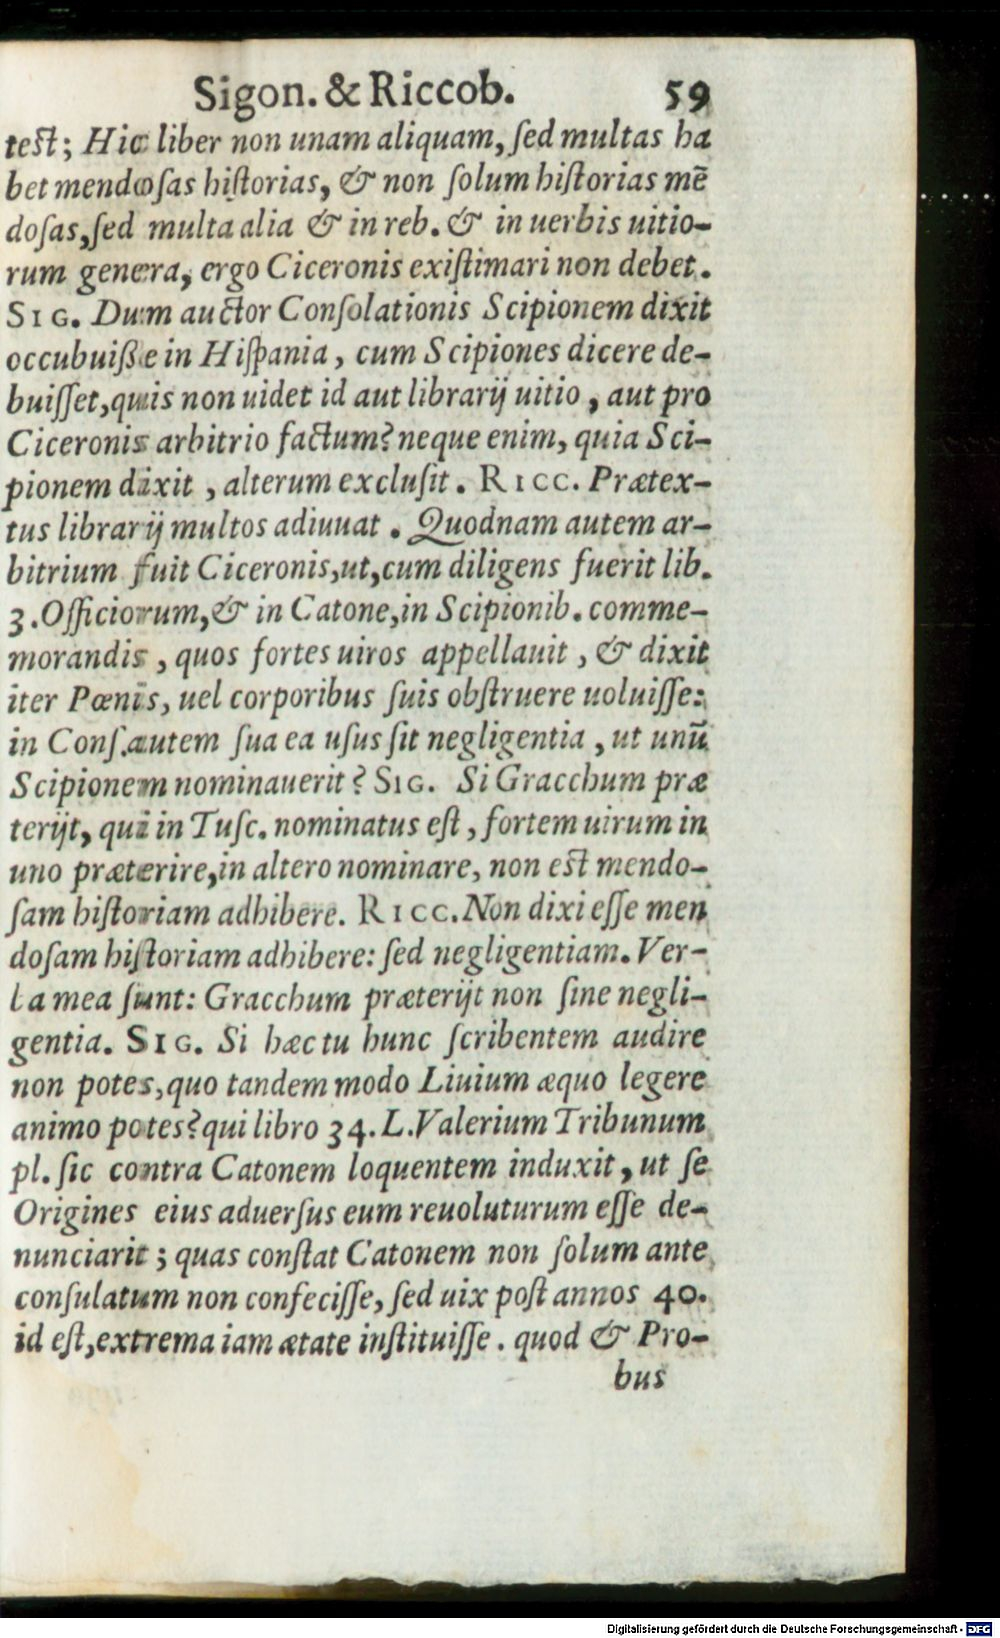 Sigon. & Riccob. 59
test; Hic liber non unam aliquam, sed multas ha
bet mendosas historias, & non solum historias mē
dosas, sed multa alia & in reb. & in uerbis uitio-
rum genera, ergo Ciceronis existimari non debet.
SIG. Dum auctor Consolationis Scipionem dixit
occubuiße in Hispania, cum Scipiones dicere de-
buisset, quis non uidet id aut librarij uitio, aut pro
Ciceronis arbitrio factum? neque enim, quia Sci-
pionem dixit, alterum exclusit. RICC. Prætex-
tus librarij multos adiuuat. Quodnam autem ar-
bitrium fuit Ciceronis, ut, cum diligens fuerit lib.
3. Officiorum, & in Catone, in Scipionib. comme-
morandis, quos fortes uiros appellauit, & dixit
iter Pœnis, uel corporibus suis obstruere uoluisse:
in Cons. autem sua ea usus sit negligentia, ut unū
Scipionem nominauerit? SIG. Si Gracchum præ
terijt, qui in Tusc. nominatus est, fortem uirum in
uno præterire, in altero nominare, non est mendo-
sam historiam adhibere. RICC. Non dixi esse men
dosam historiam adhibere: sed negligentiam. Ver-
ba mea sunt: Gracchum præterijt non sine negli-
gentia. SIG. Si hæc tu hunc scribentem audire
non potes, quo tandem modo Liuium æquo legere
animo potes? qui libro 34. L. Valerium Tribunum
pl. sic contra Catonem loquentem induxit, ut se
Origines eius aduersus eum reuoluturum esse de-
nunciarit; quas constat Catonem non solum ante
consulatum non confecisse, sed uix post annos 40.
id est, extrema iam ætate instituisse. quod & Pro-
bus
Digitalisierung gefördert durch die Deutsche Forschungsgemeinschaft - DFG